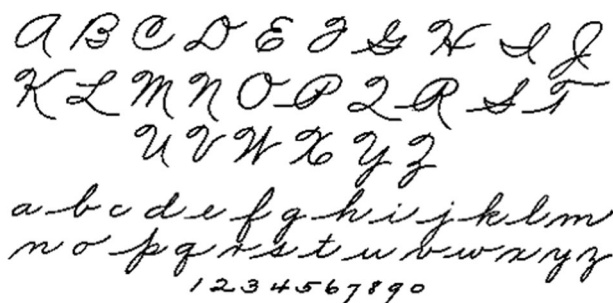 A B C D E F G H I J
K L M N O P Q R S T
U V W X Y Z
a b c d e f g h i j k l m
n o p q r s t u v w x y z
1 2 3 4 5 6 7 8 9 0